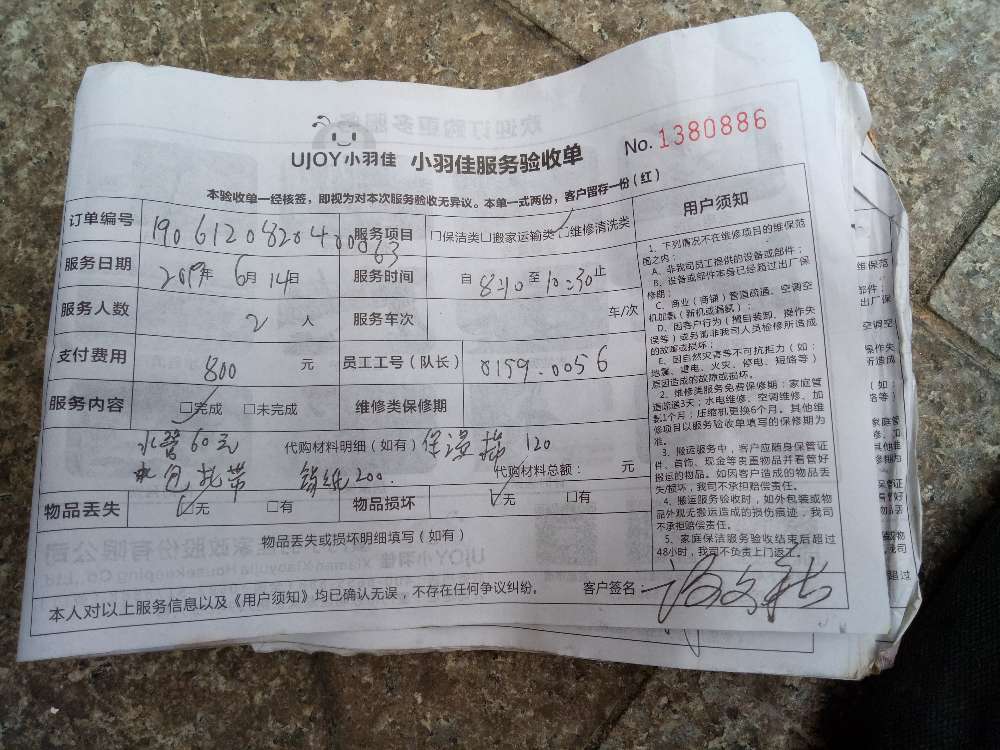 UJOY小羽佳 小羽佳服务验收单 No.1380886
本验收单一经核签，即视为对本次服务验收无异议。本单一式两份，客户留存一份（红）
订单编号 190612082040063 服务项目 □保洁类□搬家运输类□维修清洗类
服务日期 2019年6月14日 服务时间 自8:30至10:30止
服务人数 2人 服务车次 车/次
支付费用 800元 员工工号（队长） 0159.0056
服务内容 □完成 □未完成 维修类保修期
水管60元 代购材料明细（如有） 120
200. 代购材料总额： 元
物品丢失 □无 □有 物品损坏 □无 □有
物品丢失或损坏明细填写（如有）
客户签名：
本人对以上服务信息以及《用户须知》均已确认无误，不存在任何争议纠纷。
用户须知
1、下列情况不在维修项目的维保范
围之内：
A、非我司员工提供的设备或部件；
B、设备或部件本身已经超过出厂保
修期；
C、商业（商铺）管道疏通、空调空
机加氨（新机或漏氨）；
D、因客户行为（擅自装卸、操作失
误等）或另請非我司人员检修所造成
的故障或损坏；
E、因自然灾害等不可抗拒力（如：
地震、雷电、火灾、停电、短路等）
原因造成的故障或损坏。
2、维修类服务免费保修期：家庭管
道疏通3天；水电维修、空调维修、加
氨1个月；压缩机更换6个月。其他维
修项目以服务验收单填写的保修期为
准。
3、搬运服务中，客户应随身保管证
件、首饰、现金等贵重物品并看管好
搬运的物品。如因客户造成的物品丢
失/损坏，我司不承担赔偿责任。
4、搬运服务验收时，如外包装或物
品外观无搬运造成的损伤痕迹，我司
不承担赔偿责任。
5、家庭保洁服务验收结束后超过
48小时，我司不负责上门返工。